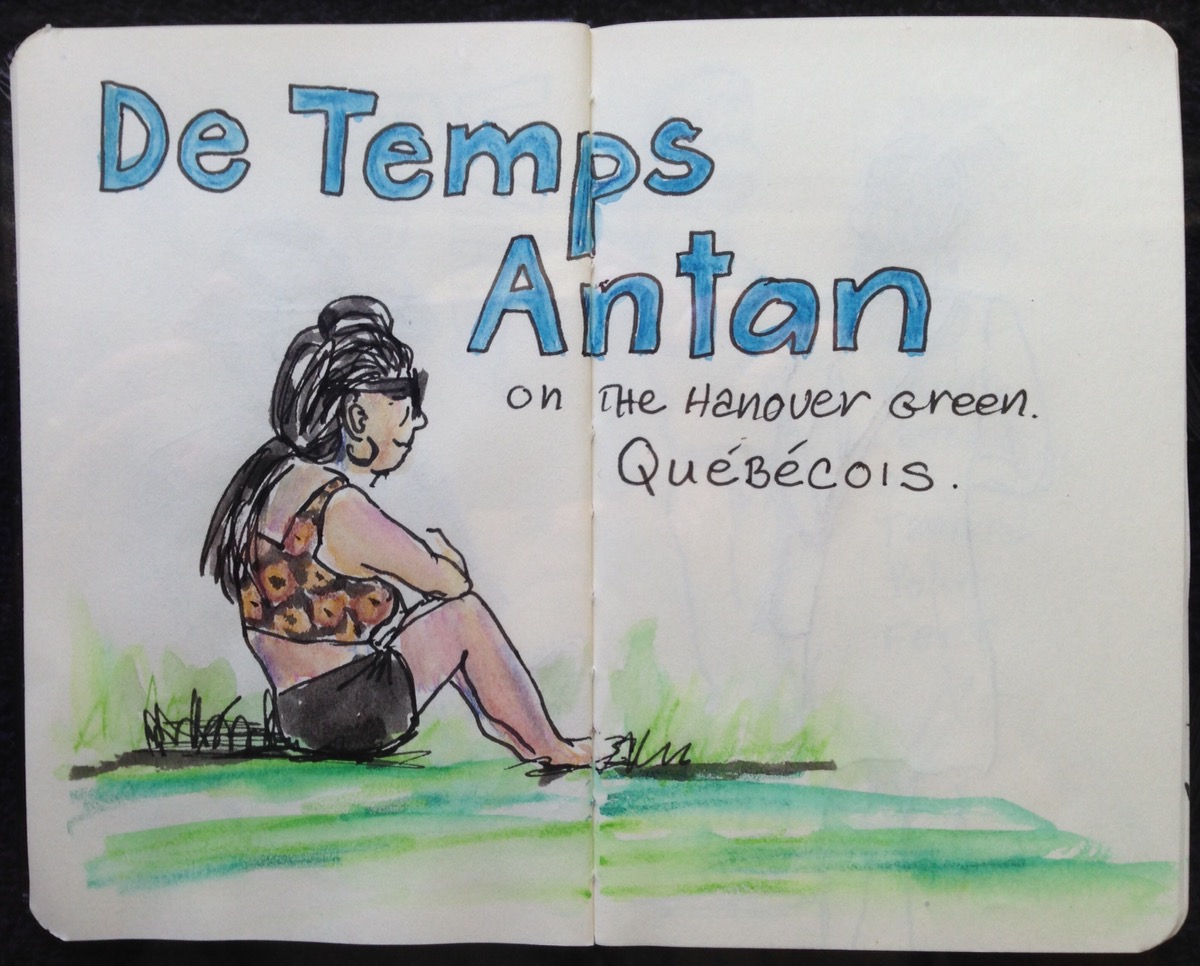 De Temps
Antan
on THE Hanover Green.
QuÉBÉCOIS.